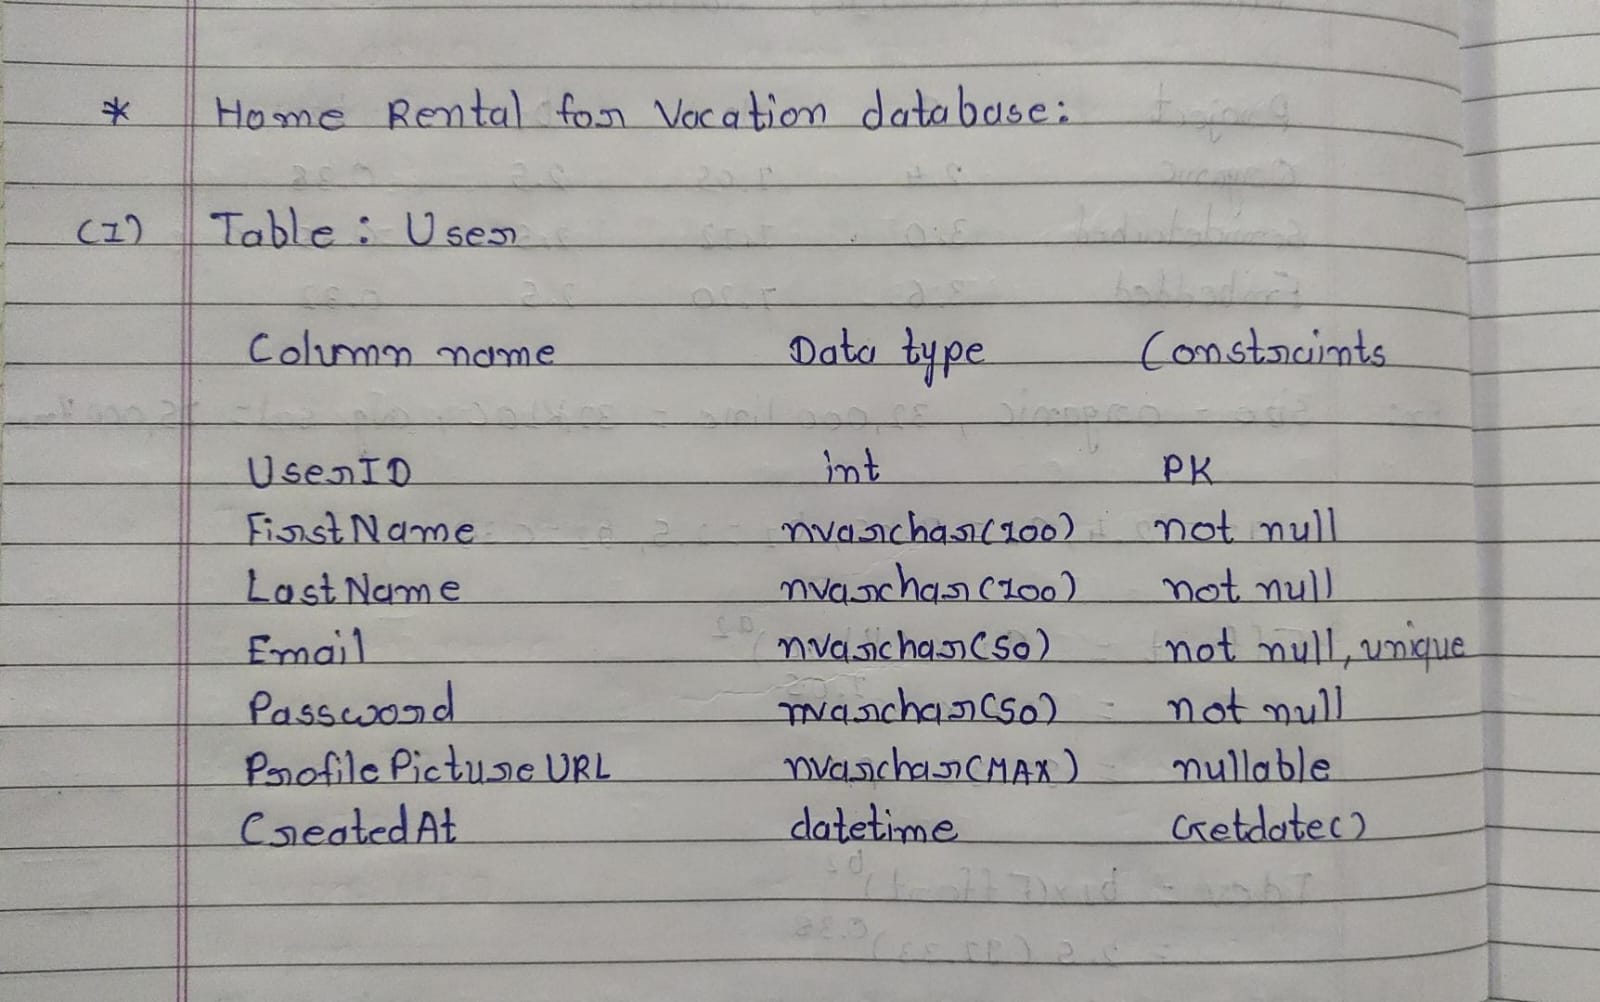 * Home Rental for Vacation database:
(I) Table : User
Column name Data type Constraints
UserID int PK
FirstName nvarchar(100) not null
LastName nvarchar(100) not null
Email nvarchar(50) not null, unique
Password nvarchar(50) not null
ProfilePictureURL nvarchar(MAX) nullable
CreatedAt datetime Getdate()